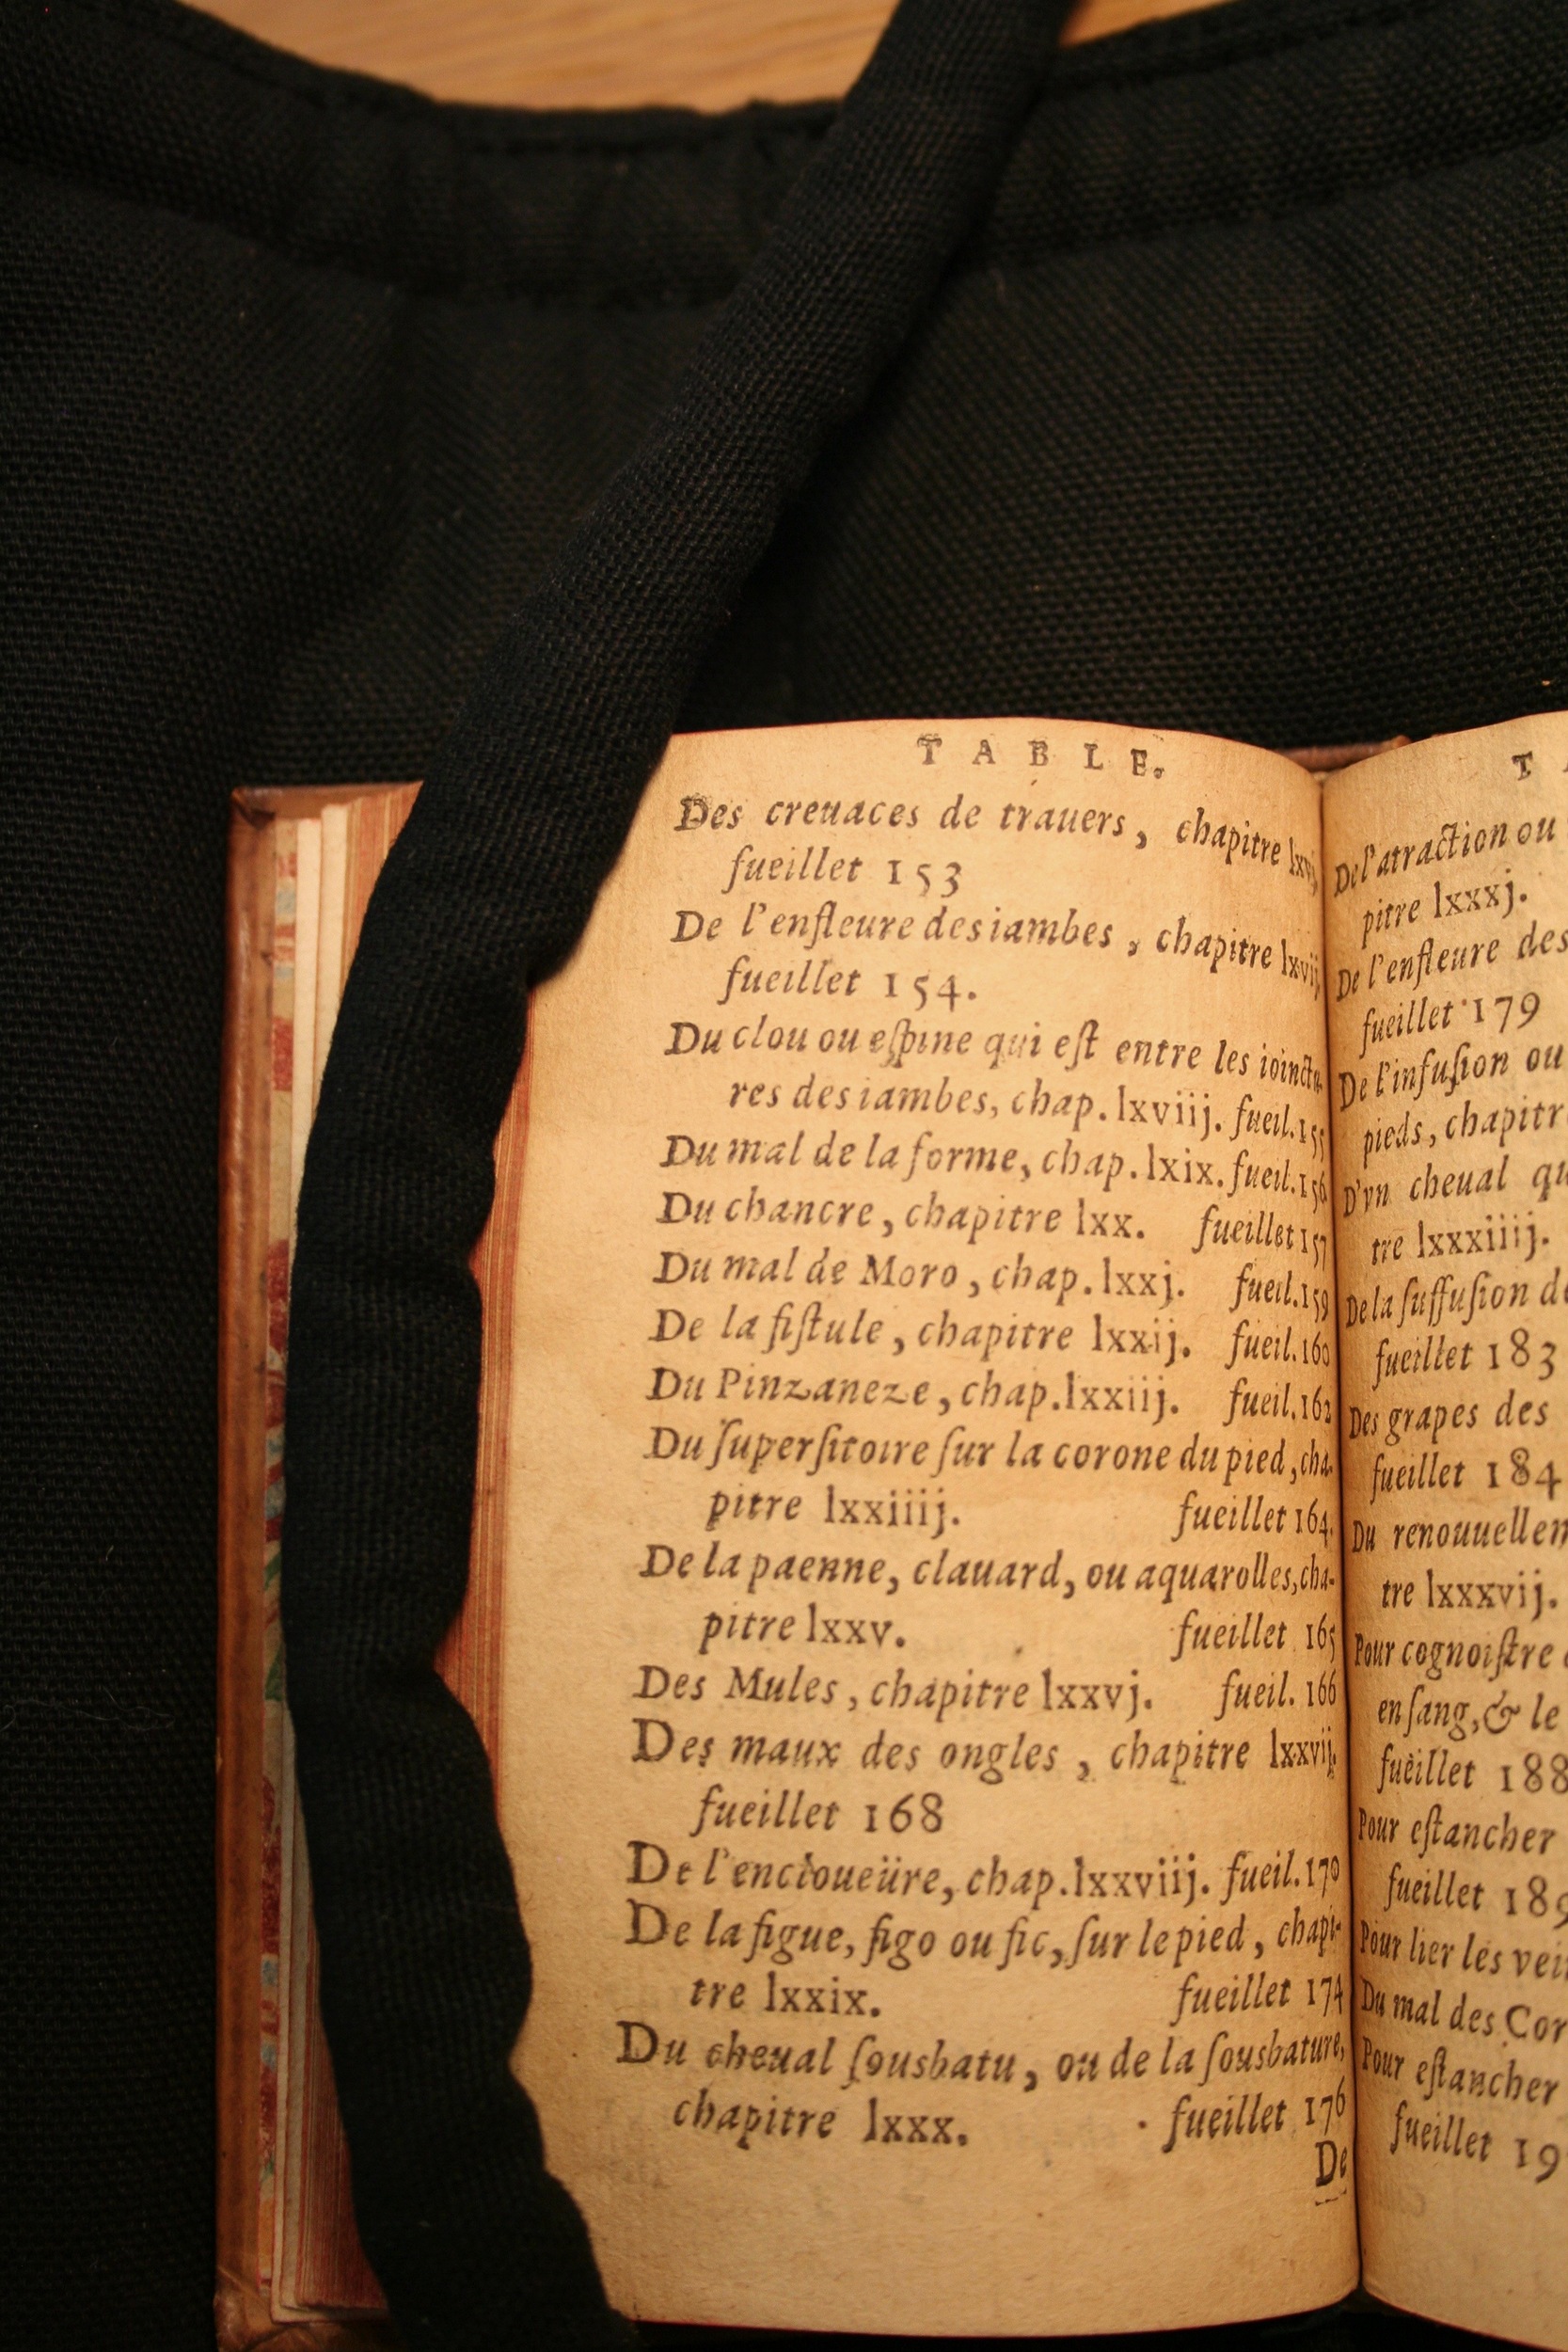 TABLE.
Des creuaces de trauers, chapitre
fueillet 153
De l'enfleure des iambes, chapitre lxvij.
fueillet 154.
Du clou ou eſpine qui eſt entre les ioinctu-
res des iambes, chap. lxviij. fueil. 155
Du mal de la forme, chap. lxix. fueil. 156
Du chancre, chapitre lxx. fueillet 157
Du mal de Moro, chap. lxxj. fueil. 159
De la fiſtule, chapitre lxxij. fueil. 160
Du Pinzaneze, chap. lxxiij. fueil. 162
Du ſuperſitoire ſur la corone du pied, cha-
pitre lxxiiij. fueillet 164.
De la paenne, clauard, ou aquarolles, cha-
pitre lxxv. fueillet 165
Des Mules, chapitre lxxvj. fueil. 166
Des maux des ongles, chapitre lxxvij.
fueillet 168
De l'encloueüre, chap. lxxviij. fueil. 170
De la figue, figo ou fic, ſur le pied, chapi-
tre lxxix. fueillet 174
Du cheual ſousbatu, ou de la ſousbature,
chapitre lxxx. fueillet 176
De
T
De l'atraction ou
pitre lxxxj.
De l'enfleure des
fueillet 179
De l'infuſion ou
pieds, chapitr
D'vn cheual qu
tre lxxxiiij.
De la ſuffuſion de
fueillet 183
Des grapes des
fueillet 184
Du renouuellem
tre lxxxvij.
Pour cognoiſtre
en ſang, & le
fueillet 188
Pour eſtancher
fueillet 189
Pour lier les vei
Du mal des Cor
Pour eſtancher
fueillet 19